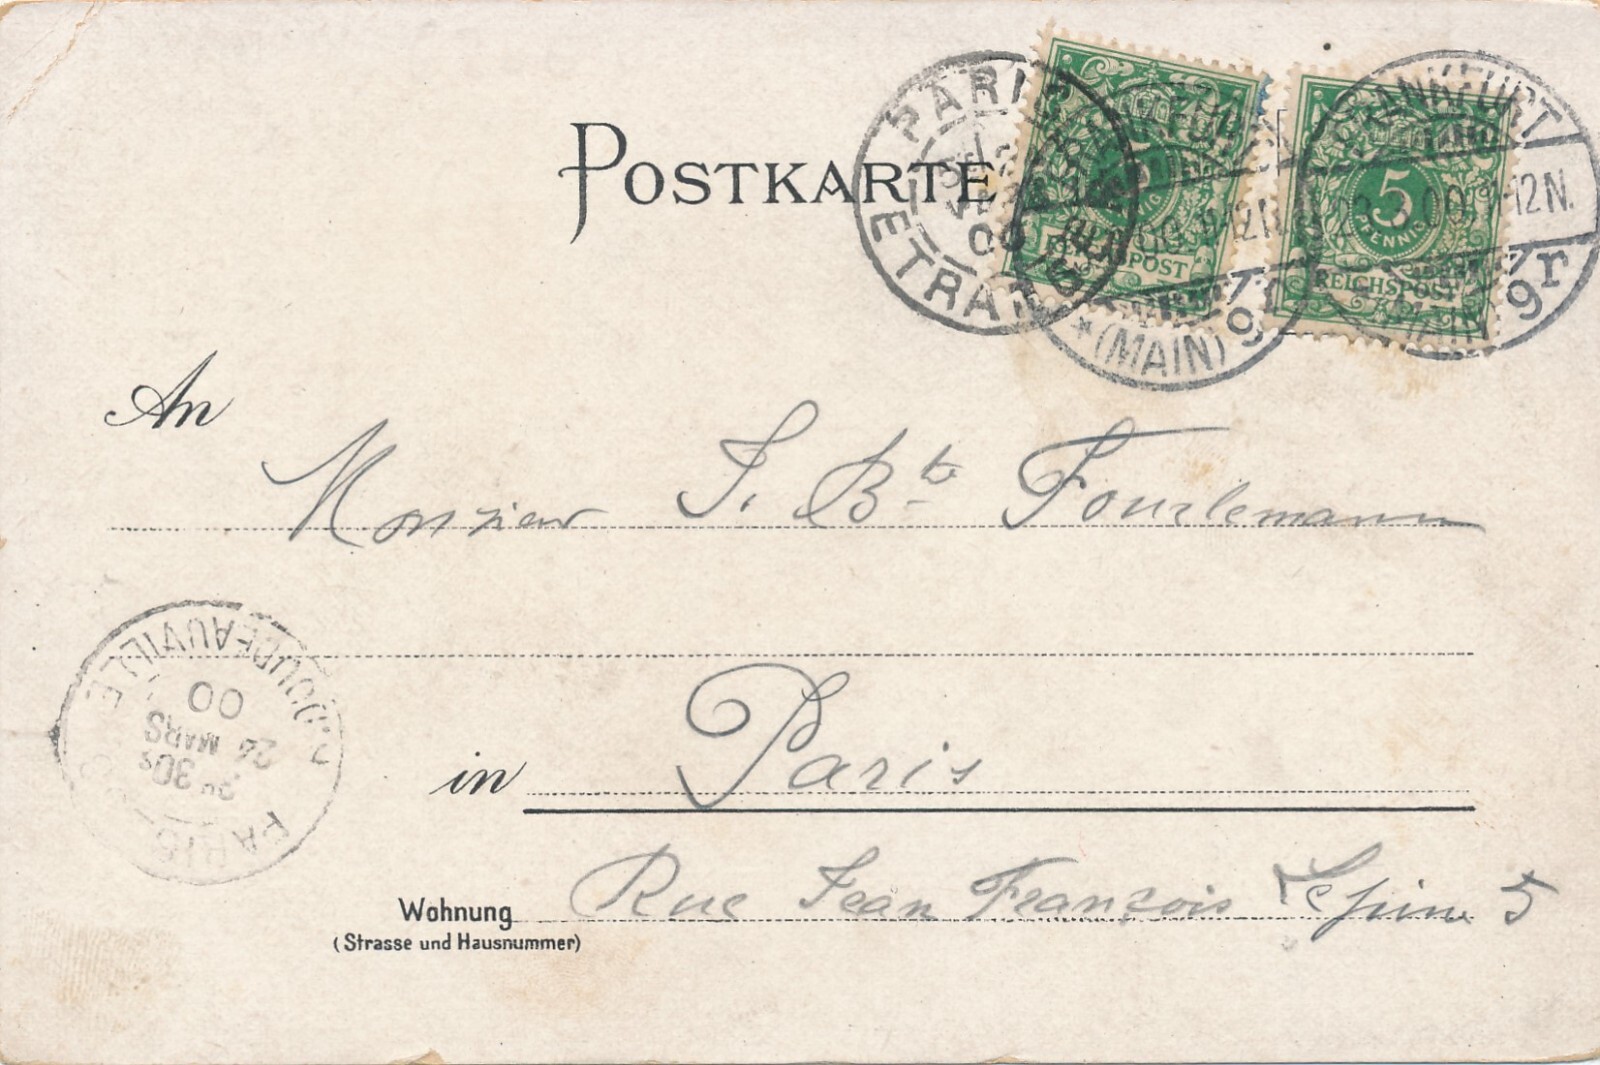 POSTKARTE
PARIS
ETRANGER
00
5
PFENNIG
REICHSPOST
*(MAIN) 9
FRANKFURT
5
PFENNIG
REICHSPOST
MAIN 9r
An
Monsieur J. Bte Fourlemann
PARIS
3E 30S
26
MARS
00
in Paris
Wohnung Rue Jean François Lépine 5
(Strasse und Hausnummer)